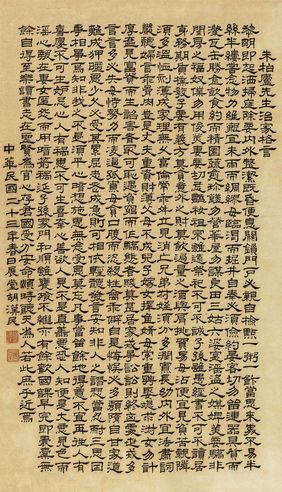 朱柏廬先生治家格言
黎明即起洒掃庭除要內外整潔既昏便息關鎖門戶必親自檢點一粥一飯當思來處不易半
絲半縷恆念物力維艱宜未雨而綢繆毋臨渴而掘井自奉必須儉約宴客切勿留連器具質而
潔瓦缶勝金玉飲食約而精園蔬愈珍饈勿營華屋勿謀良田三姑六婆實淫盜之媒婢美妾嬌非
閨房之福奴僕勿用俊美妻妾切忌豔妝祖宗雖遠祭祀不可不誠子孫雖愚經書不可不讀居
身務期質樸教子要有義方莫貪意外之財莫飲過量之酒與肩挑貿易毋佔便宜見貧苦親鄰
須多溫恤刻薄成家理無久享倫常乖舛立見消亡兄弟叔姪須分多潤寡長幼內外宜法肅詞嚴
聽婦言乖骨肉豈是丈夫重資財薄父母不成人子嫁女擇佳婿毋索重聘娶媳求淑女勿計
厚奩見富貴而生諂容者最可恥遇貧窮而作驕態者賤莫甚居家戒爭訟訟則終凶處世戒多
言言多必失毋恃勢力而凌逼孤寡毋貪口腹而恣殺牲禽乖僻自是悔誤必多頹惰自甘家道
難成狎暱惡少久必受其累屈志老成急則可相依輕聽發言安知非人之譖愬當忍耐三思因
事相爭焉知非我之不是須平心暗想施惠無念受恩莫忘凡事當留餘地得意不宜再往人有
喜慶不可生妒忌心人有禍患不可生喜幸心善欲人見不是真善惡恐人知便是大惡見色而起
淫心報在妻女匿怨而用暗箭禍延子孫家門和順雖饔飧不繼亦有餘歡國課早完即囊橐無
餘自得至樂讀書志在聖賢為官心存君國守分安命順時聽天為人若此庶乎近焉
中華民國二十三年春日展堂胡漢民